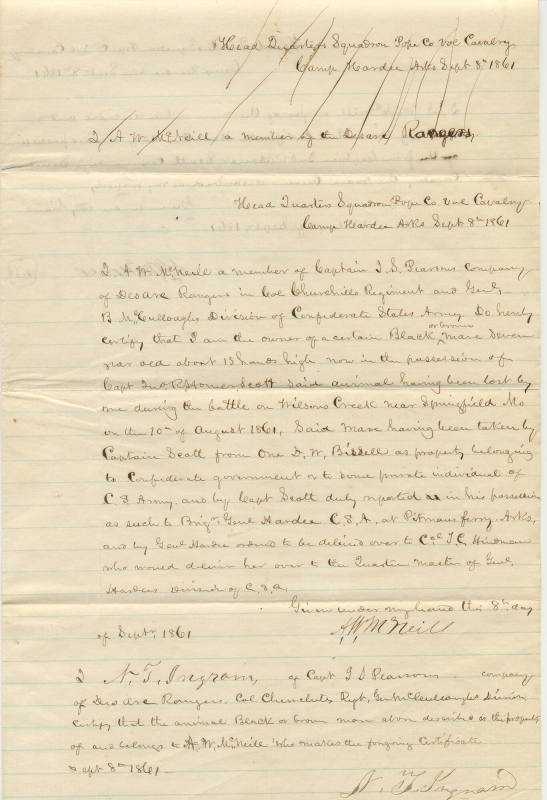 Head Quarters Squadron Pope Co Vol Cavalry
Camp Hardee Arks Sept 8th 1861
I A W McNeill a member of the Desarc Rangers,
Head Quarters Squadron Pope Co Vol Cavalry
Camp Hardee Arks Sept 8th 1861
I A. W. McNeill a member of Captain J. S. Pearsons company
of Desarc Rangers in Col Churchills Regiment and Genl.
B McCulloughs Division of Confederate States Army. Do hereby
certify that I am the owner of a certain Black or brown Mare Seven
year old about 15 hands high now in the possession of
Capt Jno R Homer Scott Said animal having been lost by
me during the battle on Wilsons Creek near Springfield Mo
on the 10th of August 1861, Said Mare having been taken by
Captain Scott from One D. W. Bissell as property belonging
to Confederate government or to some private individual of
C. S Army. and by Capt Scott duly reported as in his possession
as such to Brigr Genl Hardee C. S. A. at Pitmans ferry Arks,
and by Genl Hardee ordered to be delived over to Col T. C. Hindman
who would deliver her over to the Quarter Master of Genl.
Hardees Division of C. S. A.
Given under my hand this 8th day
of Septr 1861
A. W. McNeill
I N. T. Ingram, of Capt J S Pearsons company
of Desarc Rangers. Col Regt, Gen Division
Certify that the animal Black or brown mare above described is the property
of and belongs to A. W. McNeill who makes the forgoing Certificate
Sept 8th 1861 -
N. T. Ingram